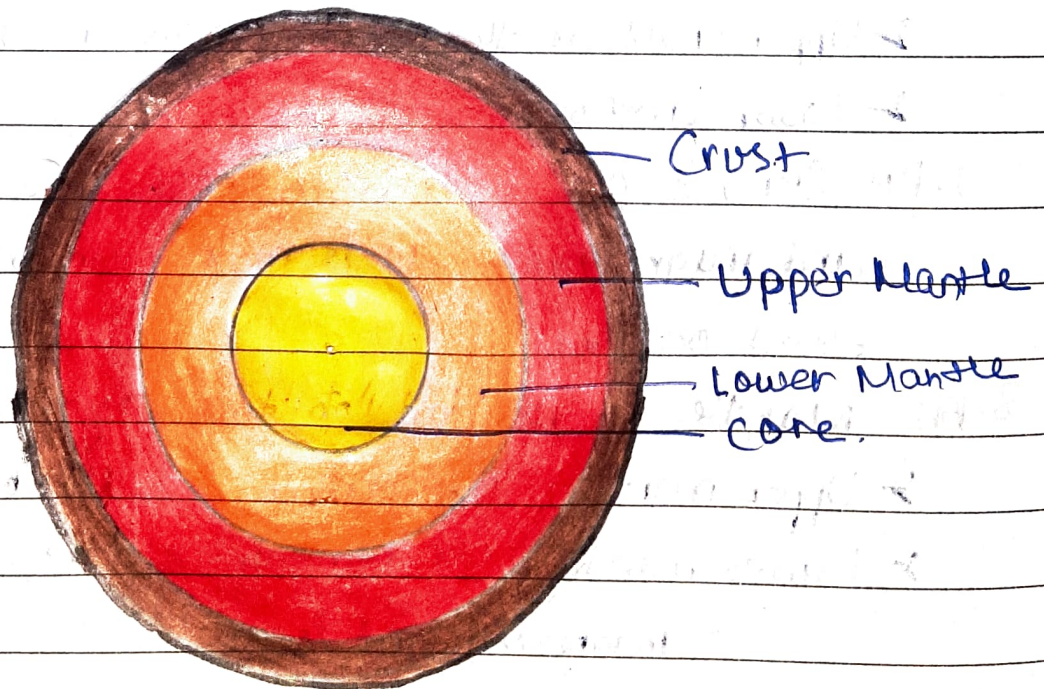 Crust
Upper Mantle
Lower Mantle
core.